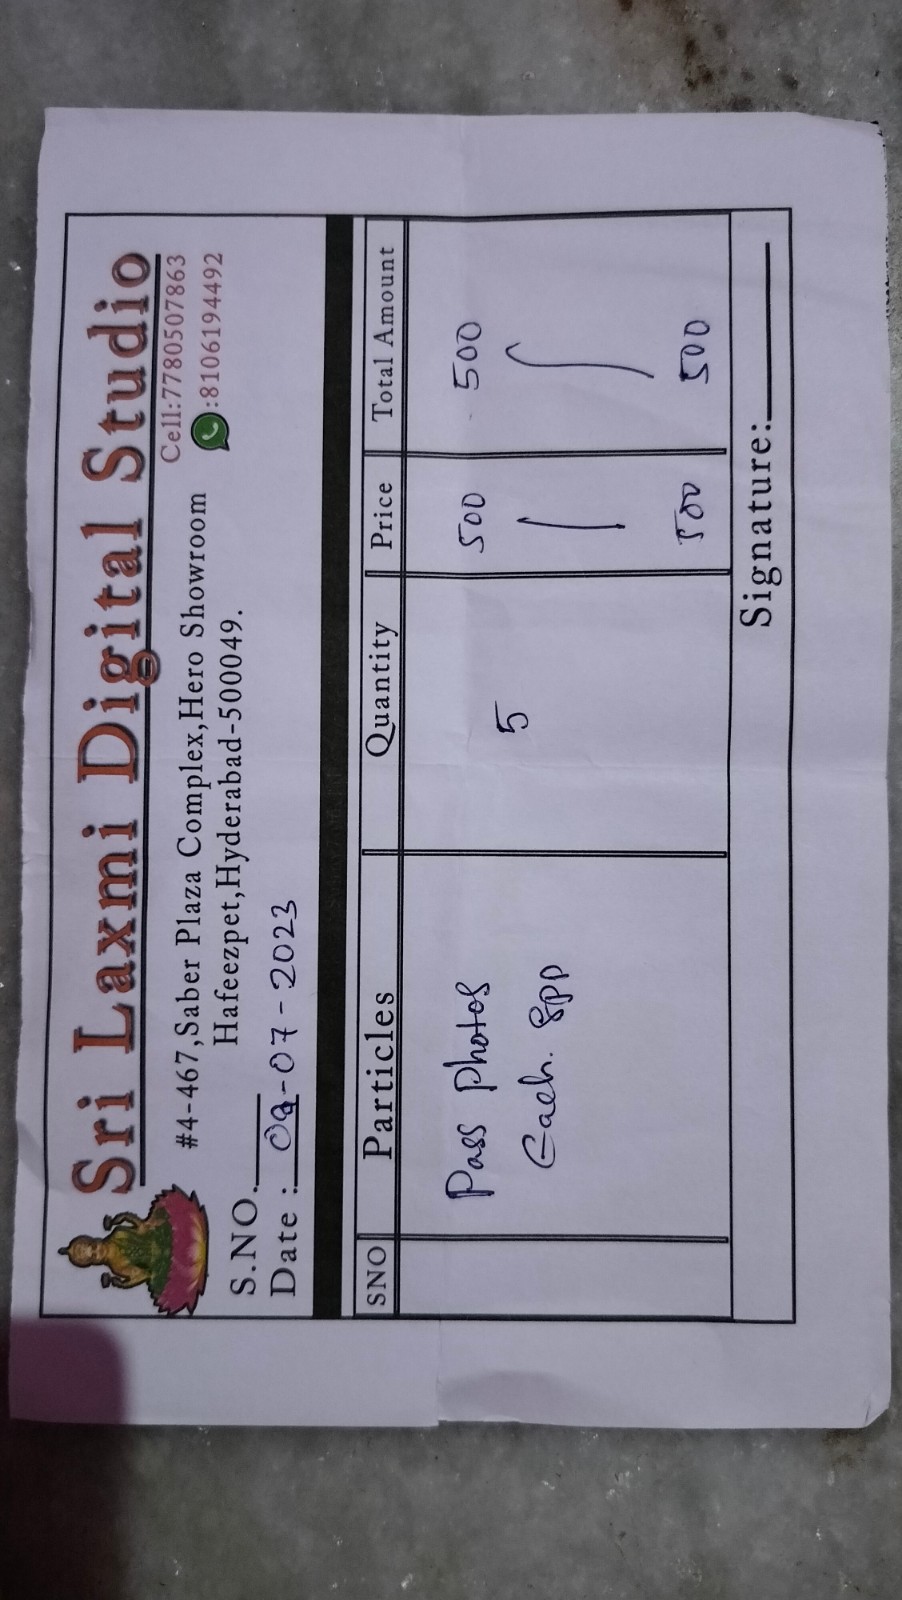 Sri Laxmi Digital Studio
#4-467,Saber Plaza Complex,Hero Showroom
Hafeezpet,Hyderabad-500049.
Cell:7780507863
:8106194492
S.NO.
Date : 09-07-2023
SNO Particles Quantity Price Total Amount
Pass Photos 500 500
Each. 8pp 5
500 500
Signature: